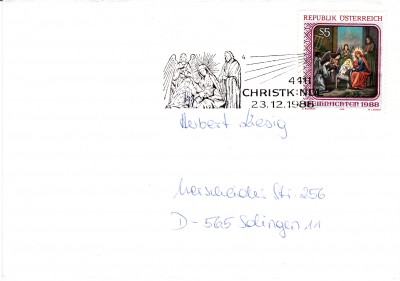 REPUBLIK ÖSTERREICH
S5
4
4411
CHRISTKINDL
23.12.1988
WEIHNACHTEN 1988
Herbert
Merscheider Str. 256
D-565 Solingen 11